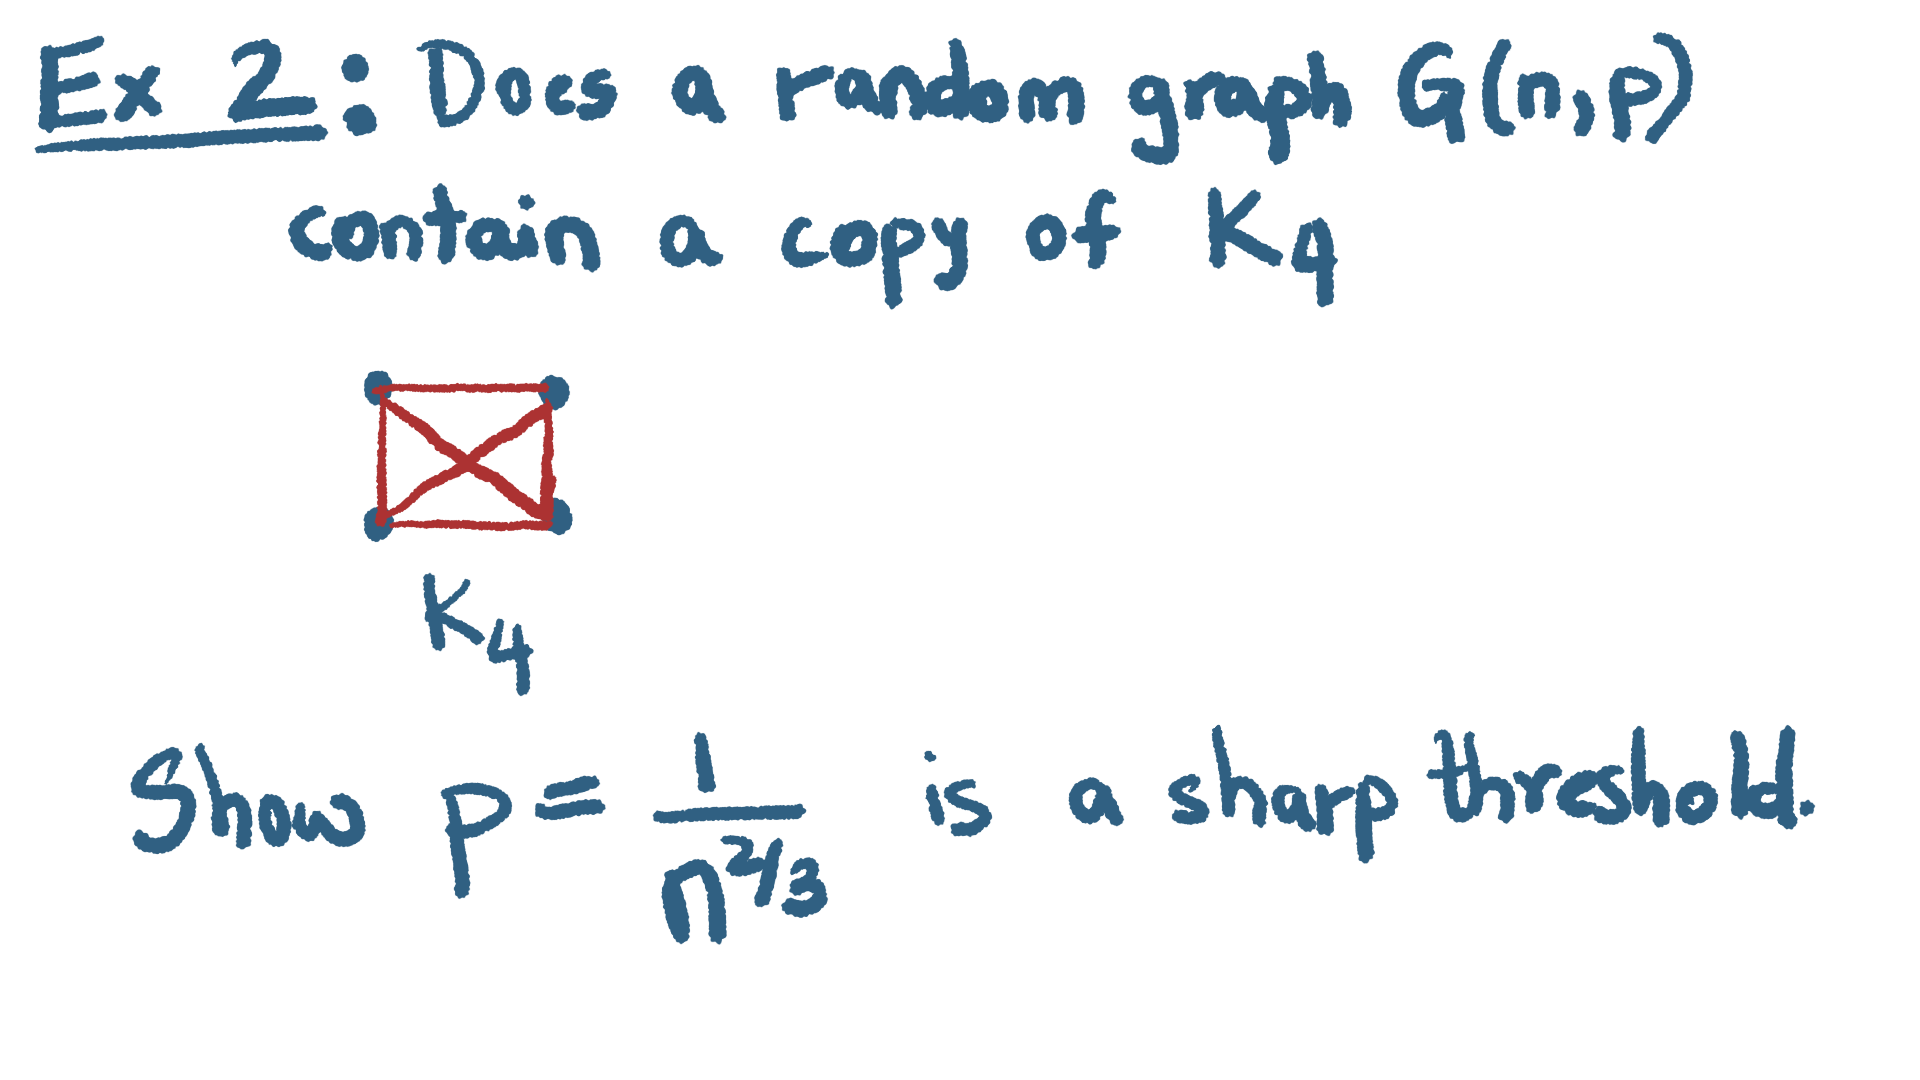 Ex 2: Does a random graph G(n,p)
contain a copy of K₄
K₄
Show p = 1/n^{2/3} is a sharp threshold.